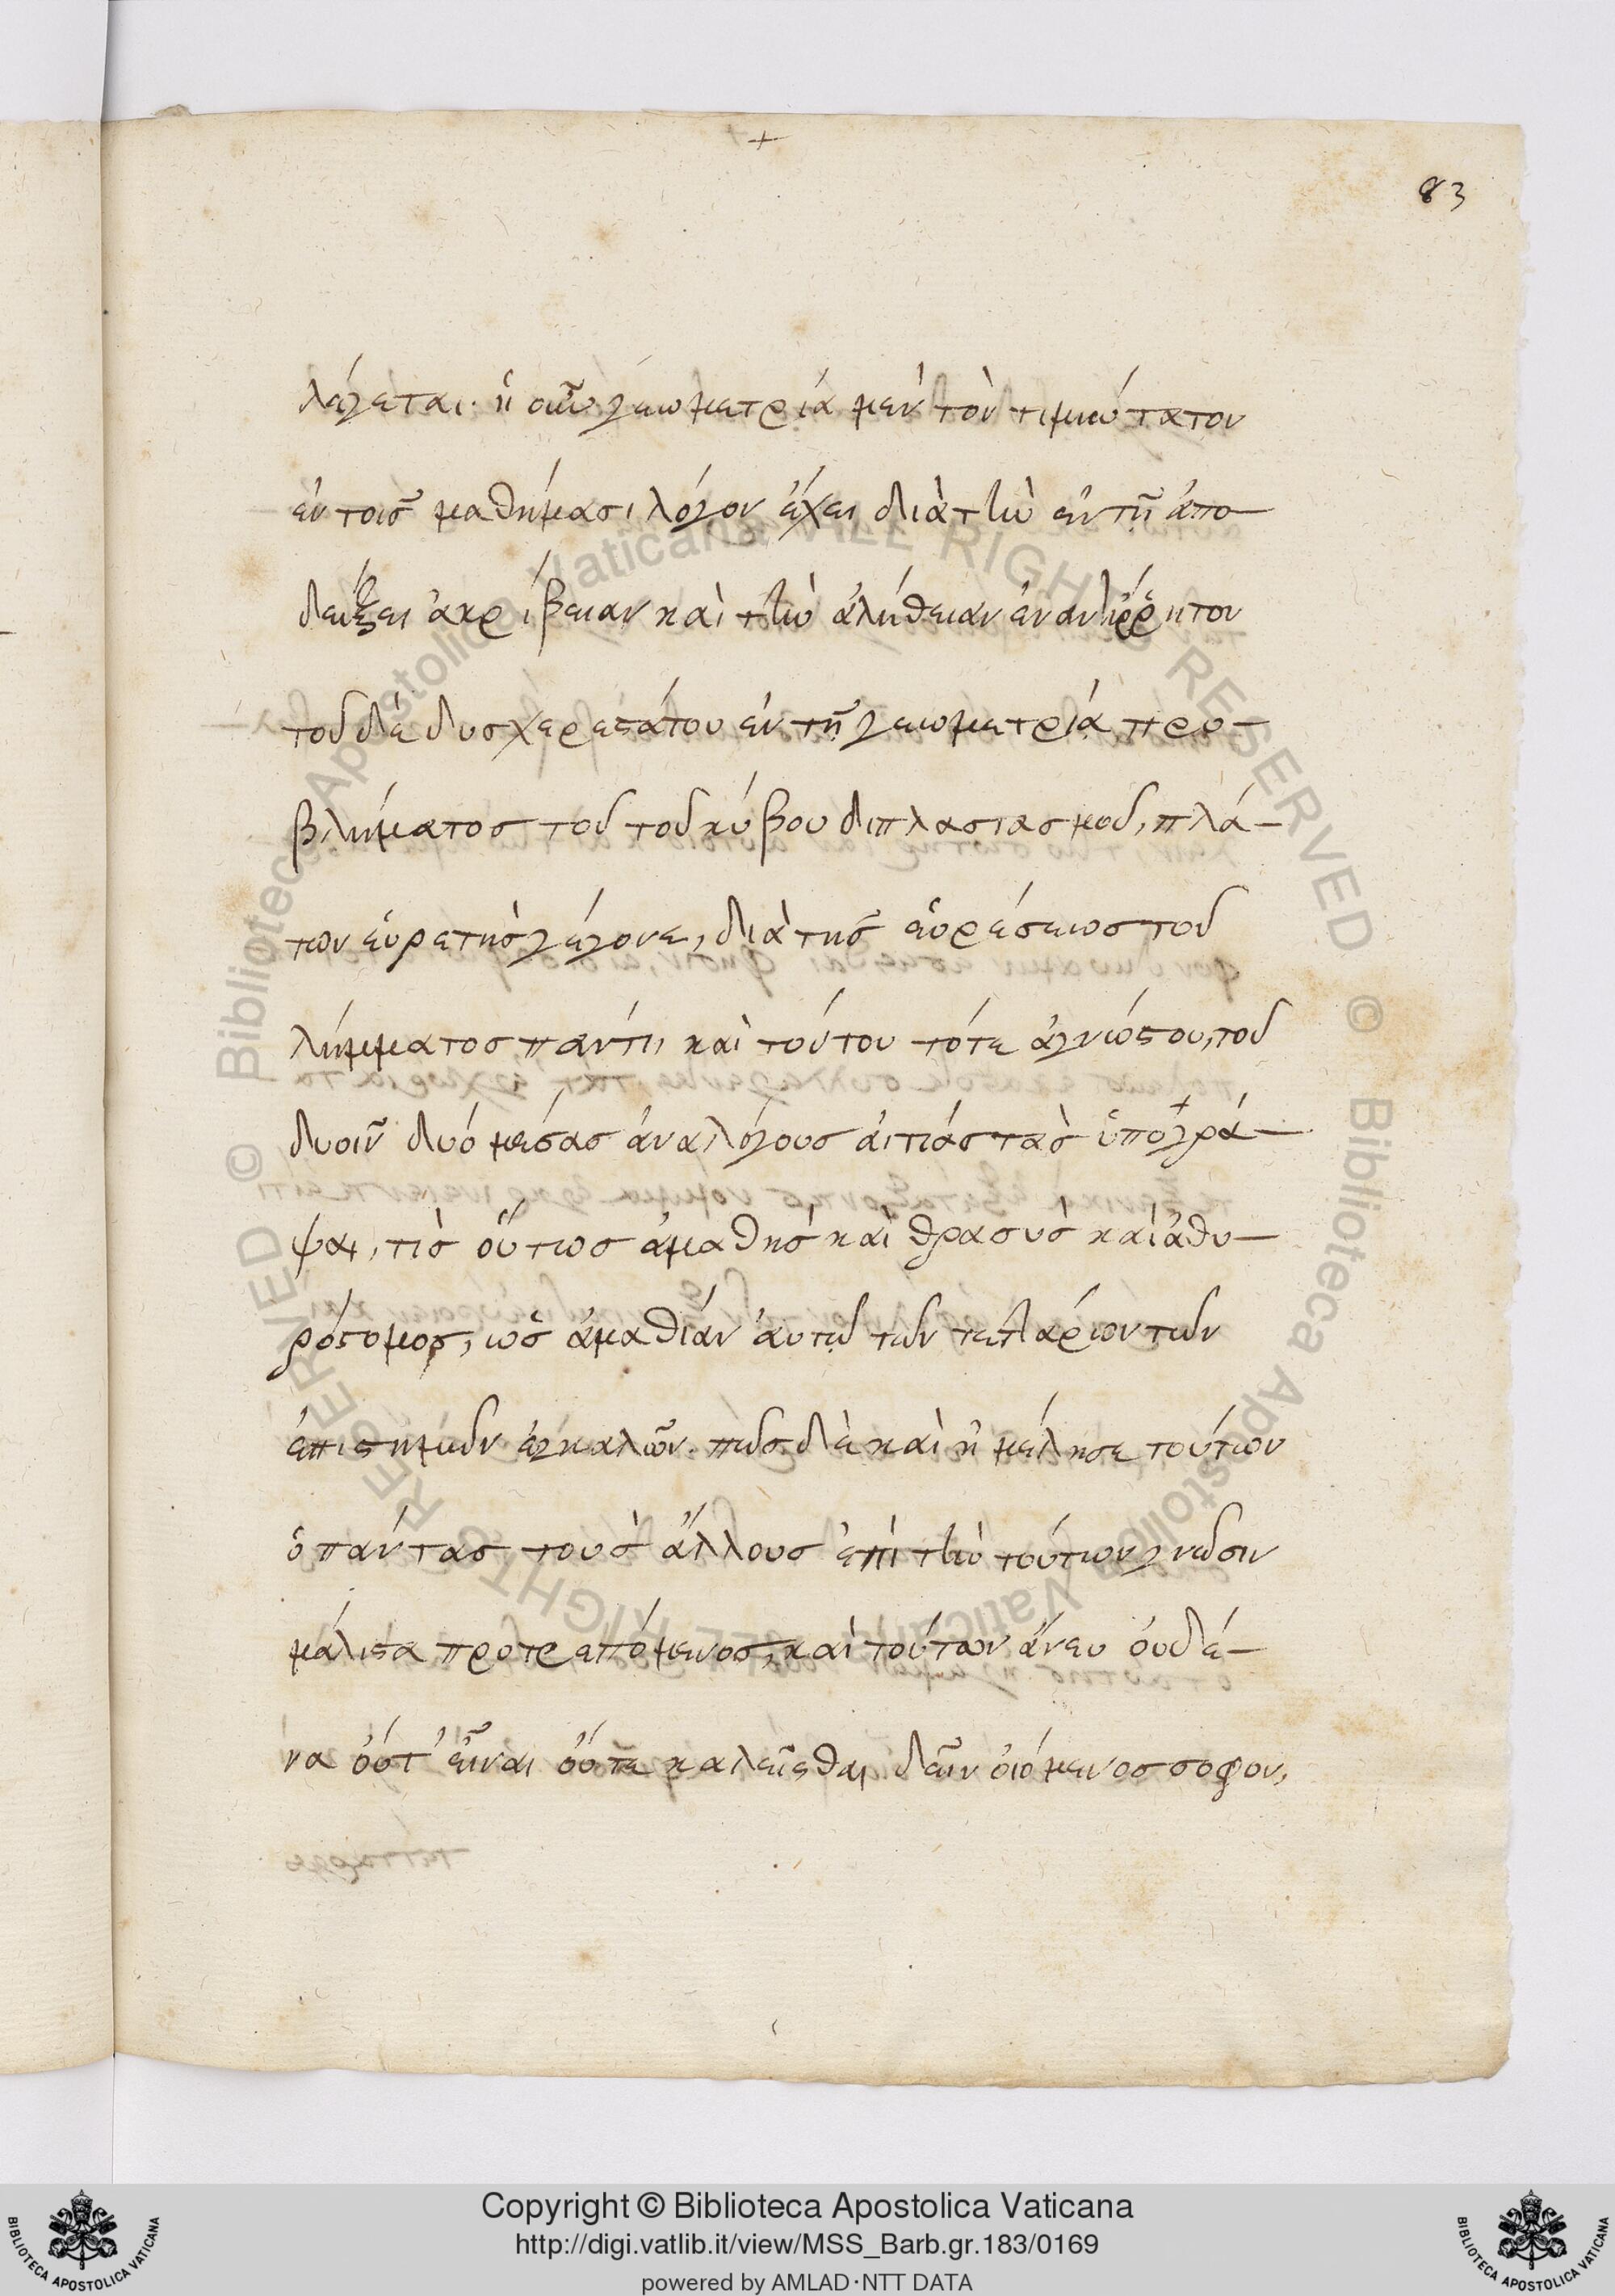 83
λέγεται. ἡ οὖν γεωμετρία μὲν τὸν τιμιώτατον
ἐν τοῖς μαθήμασι λόγον ἔχει διὰ τὴν ἐν τῇ ἀπο-
δείξει ἀκρίβειαν καὶ τὴν ἀλήθειαν ἐναντίρρητον
τοῦ δὲ δυσχερεστάτου ἐν τῇ γεωμετρία προ-
βλήματος τοῦ τοῦ κύβου διπλασιασμοῦ, πλά-
των εὑρετὴς γέγονε, διὰ τῆς εὑρέσεως τοῦ
λήμματος παντὶ, καὶ τούτου τότε ἀγνώστου, τοῦ
δυοῖν δυό μέσας ἀναλόγους αἰτιάς τὰς ὑπογρά-
ψαι, τίς οὕτως ἀμαθὴς καὶ θρασὺς καὶ ἀθυ-
ρόστομος, ὡς ἀμαθίαν ἀυτῷ τῶν τεττάρων τῶν
ἐπιστημῶν ἐγκαλῶν. πῶς δὲ καὶ ἠμέλησε τούτων
ὁ πάντας τοὺς ἄλλους ἐπὶ τὴν τούτων γνῶσιν
μάλιστα προτρεπόμενος, καὶ τούτων ἄνευ οὐδέ-
να οὔτ' εἶναι οὔτε καλεῖσθαι δεῖν οἰόμενος σοφον,
Copyright © Biblioteca Apostolica Vaticana
http://digi.vatlib.it/view/MSS_Barb.gr.183/0169
powered by AMLAD·NTT DATA
BIBLIOTECA APOSTOLICA VATICANA
BIBLIOTECA APOSTOLICA VATICANA
© Biblioteca Apostolica Vaticana ALL RIGHTS RESERVED © Biblioteca Apostolica Vaticana ALL RIGHTS RESERVED